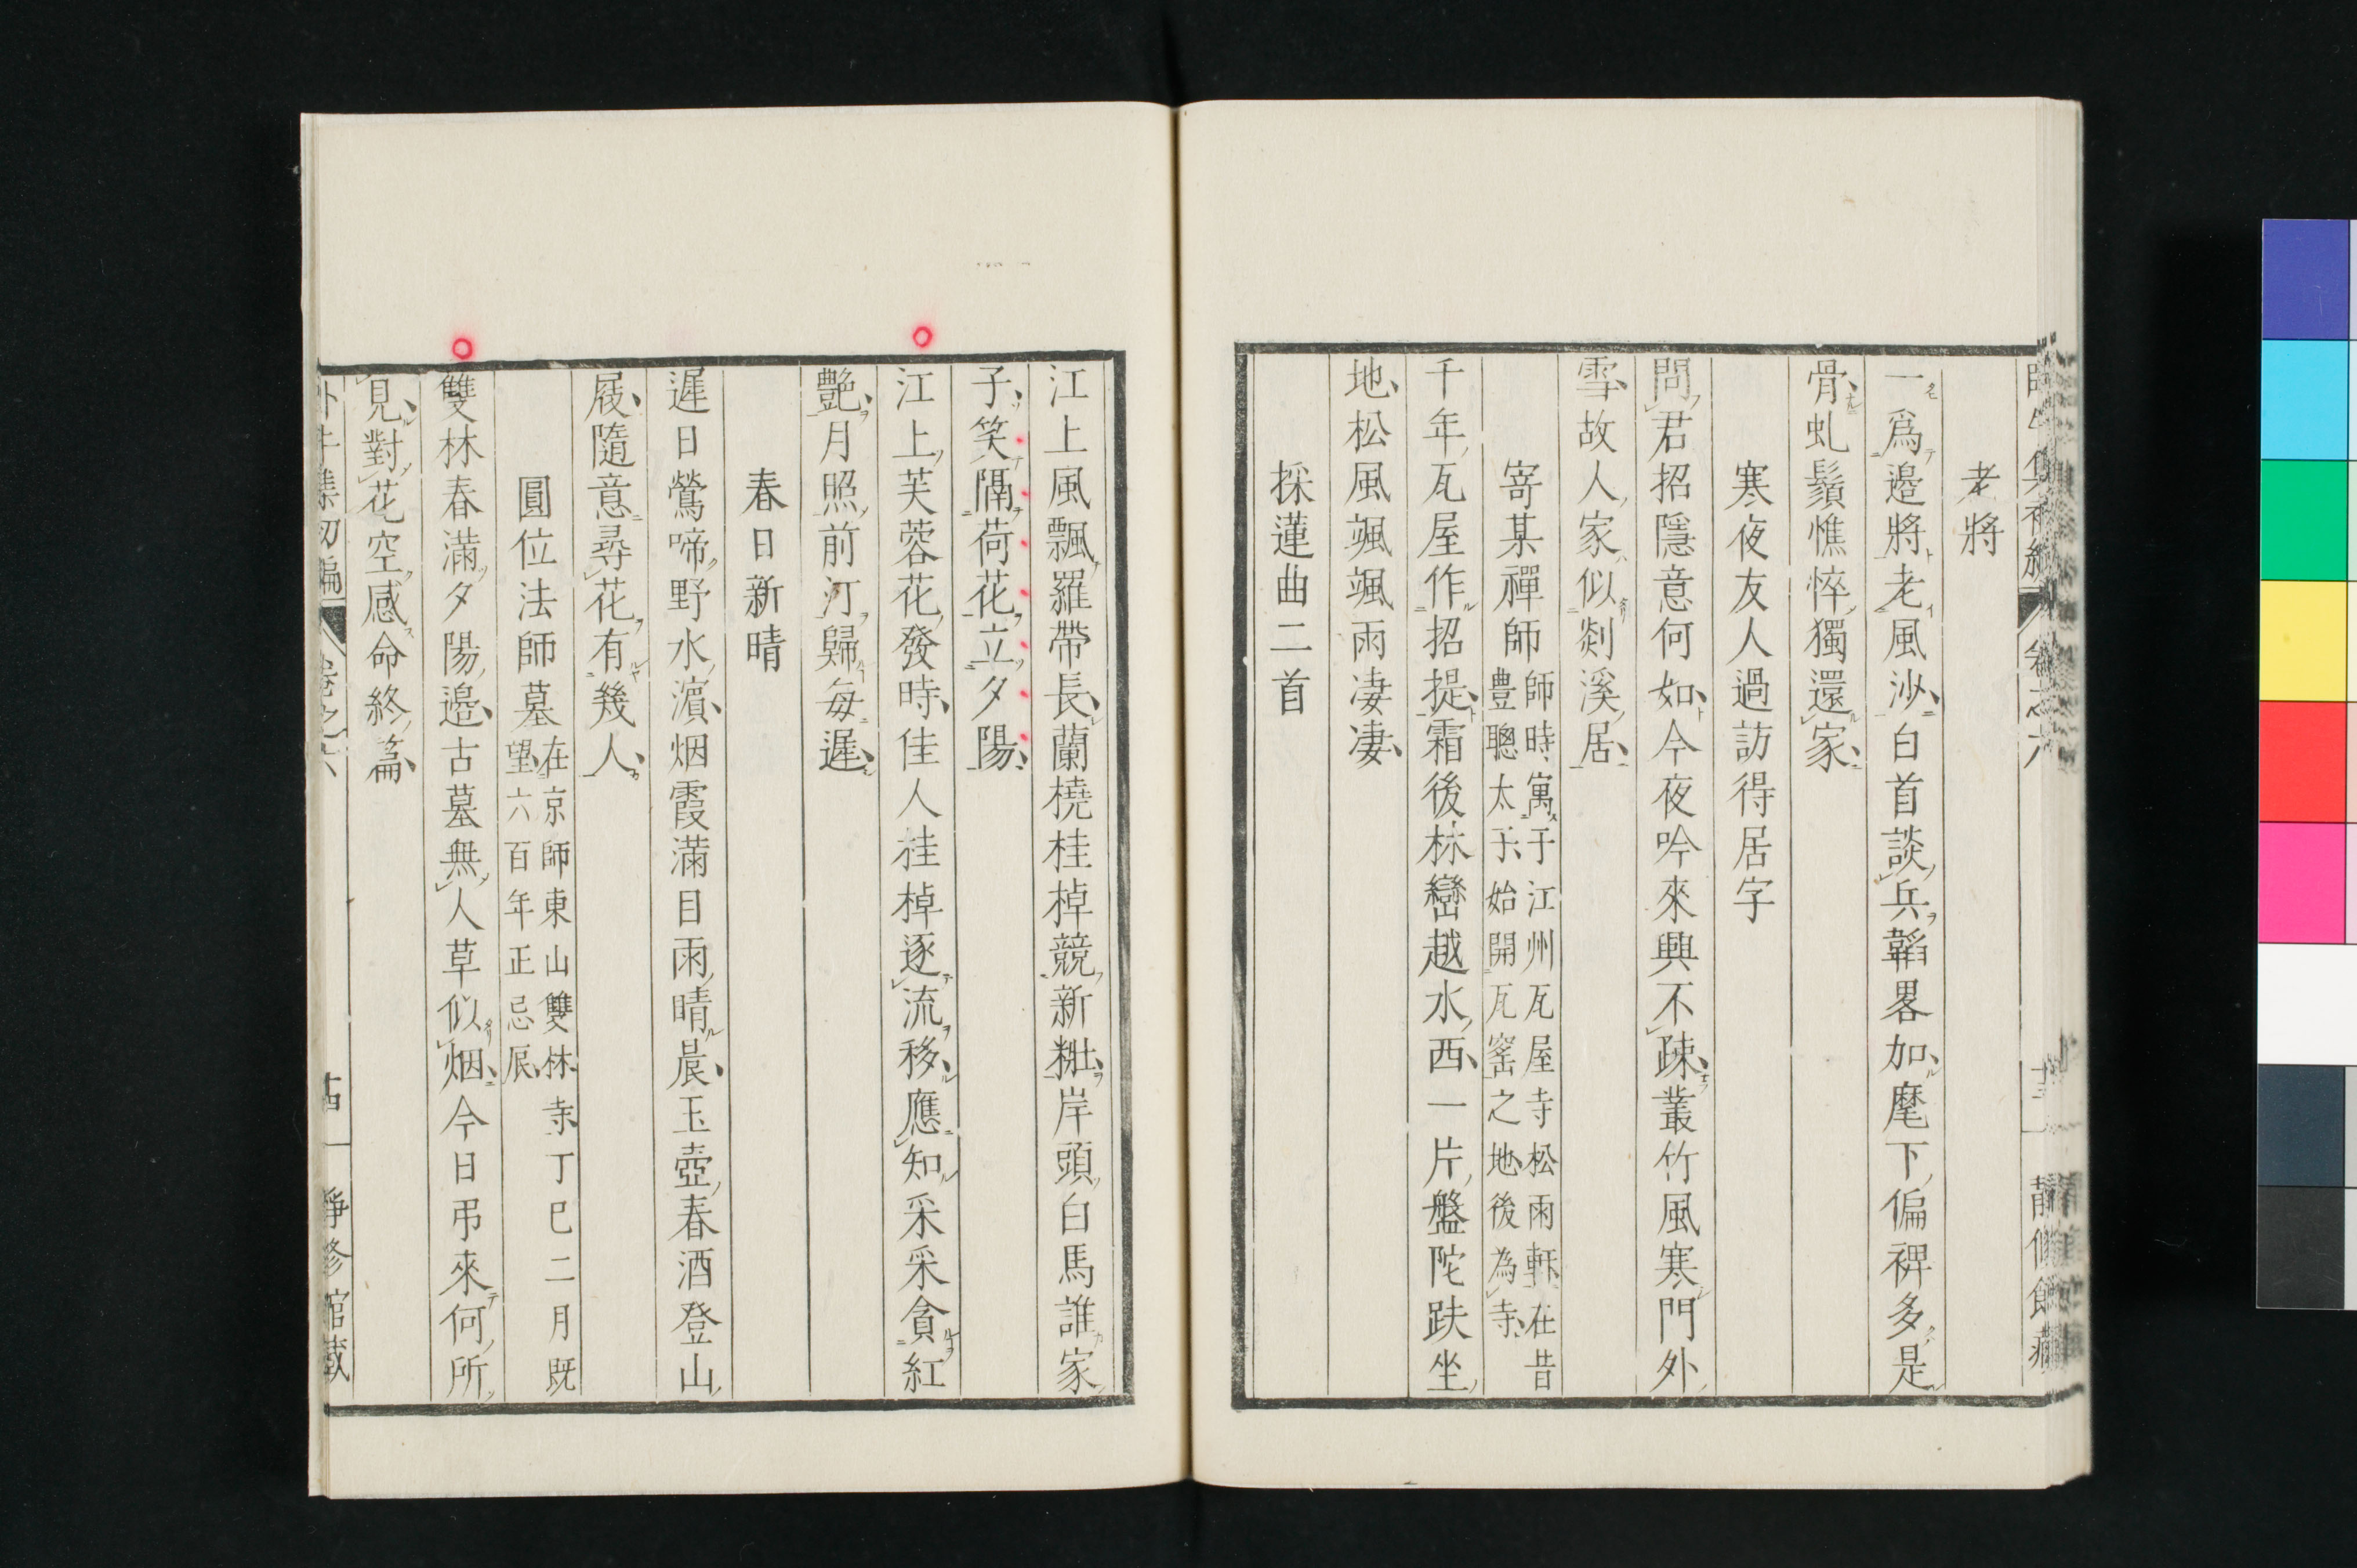 老將
一爲邉將老風沙白首談兵韜畧加麾下偏裨多是
骨虬鬚憔悴獨還家
寒夜友人過訪得居字
問君招隱意何如今夜吟來興不疎叢竹風寒門外
雪故人家似剡溪居
寄某禪師
師時寓于江州瓦屋寺松雨軒在昔
豊聰太子始開瓦窰之地後為寺
千年瓦屋作招提霜後林巒越水西一片盤陀趺坐
地松風颯颯雨凄凄
採蓮曲二首
江上風飄羅帶長蘭橈桂棹競新粧岸頭白馬誰家
子笑隔荷花立夕陽
江上芙蓉花發時佳人桂棹逐流移應知采采貪紅
艷月照前汀歸每遲
春日新晴
遲日鶯啼野水濵烟霞滿目雨晴晨玉壺春酒登山
屐隨意尋花有幾人
圓位法師墓
在京師東山雙林寺丁巳二月既
望六百年正忌辰
雙林春滿夕陽邉古墓無人草似烟今日弔來何所
見對花空感命終篇
卷之六
靜修館藏